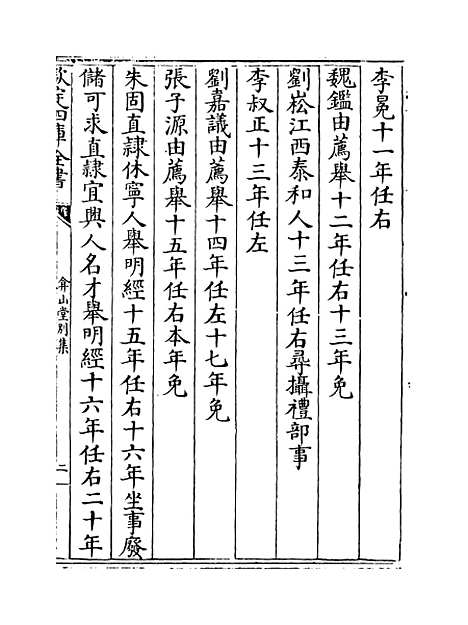 李冕十一年任右
魏鑑由薦舉十二年任右十三年免
劉崧江西泰和人十三年任右尋攝禮部事
李叔正十三年任左
劉嘉議由薦舉十四年任左十七年免
張子源由薦舉十五年任右本年免
朱固直隸休寧人舉明經十五年任右十六年坐事廢
儲可求直隸宜興人名才舉明經十六年任右二十年
欽定四庫全書
弇山堂別集
二